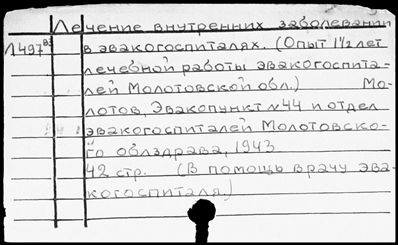 Лечение внутренних заболеваний
Л497
в эвакогоспиталях. (Опыт 1½ лет
лечебной работы эвакогоспита-
лей Молотовской обл.) Мо-
лотов, Эвакопункт №44 и отдел
эвакогоспиталей Молотовско-
го облздрава, 1943
42 стр. (В помощь врачу эва-
когоспиталя)